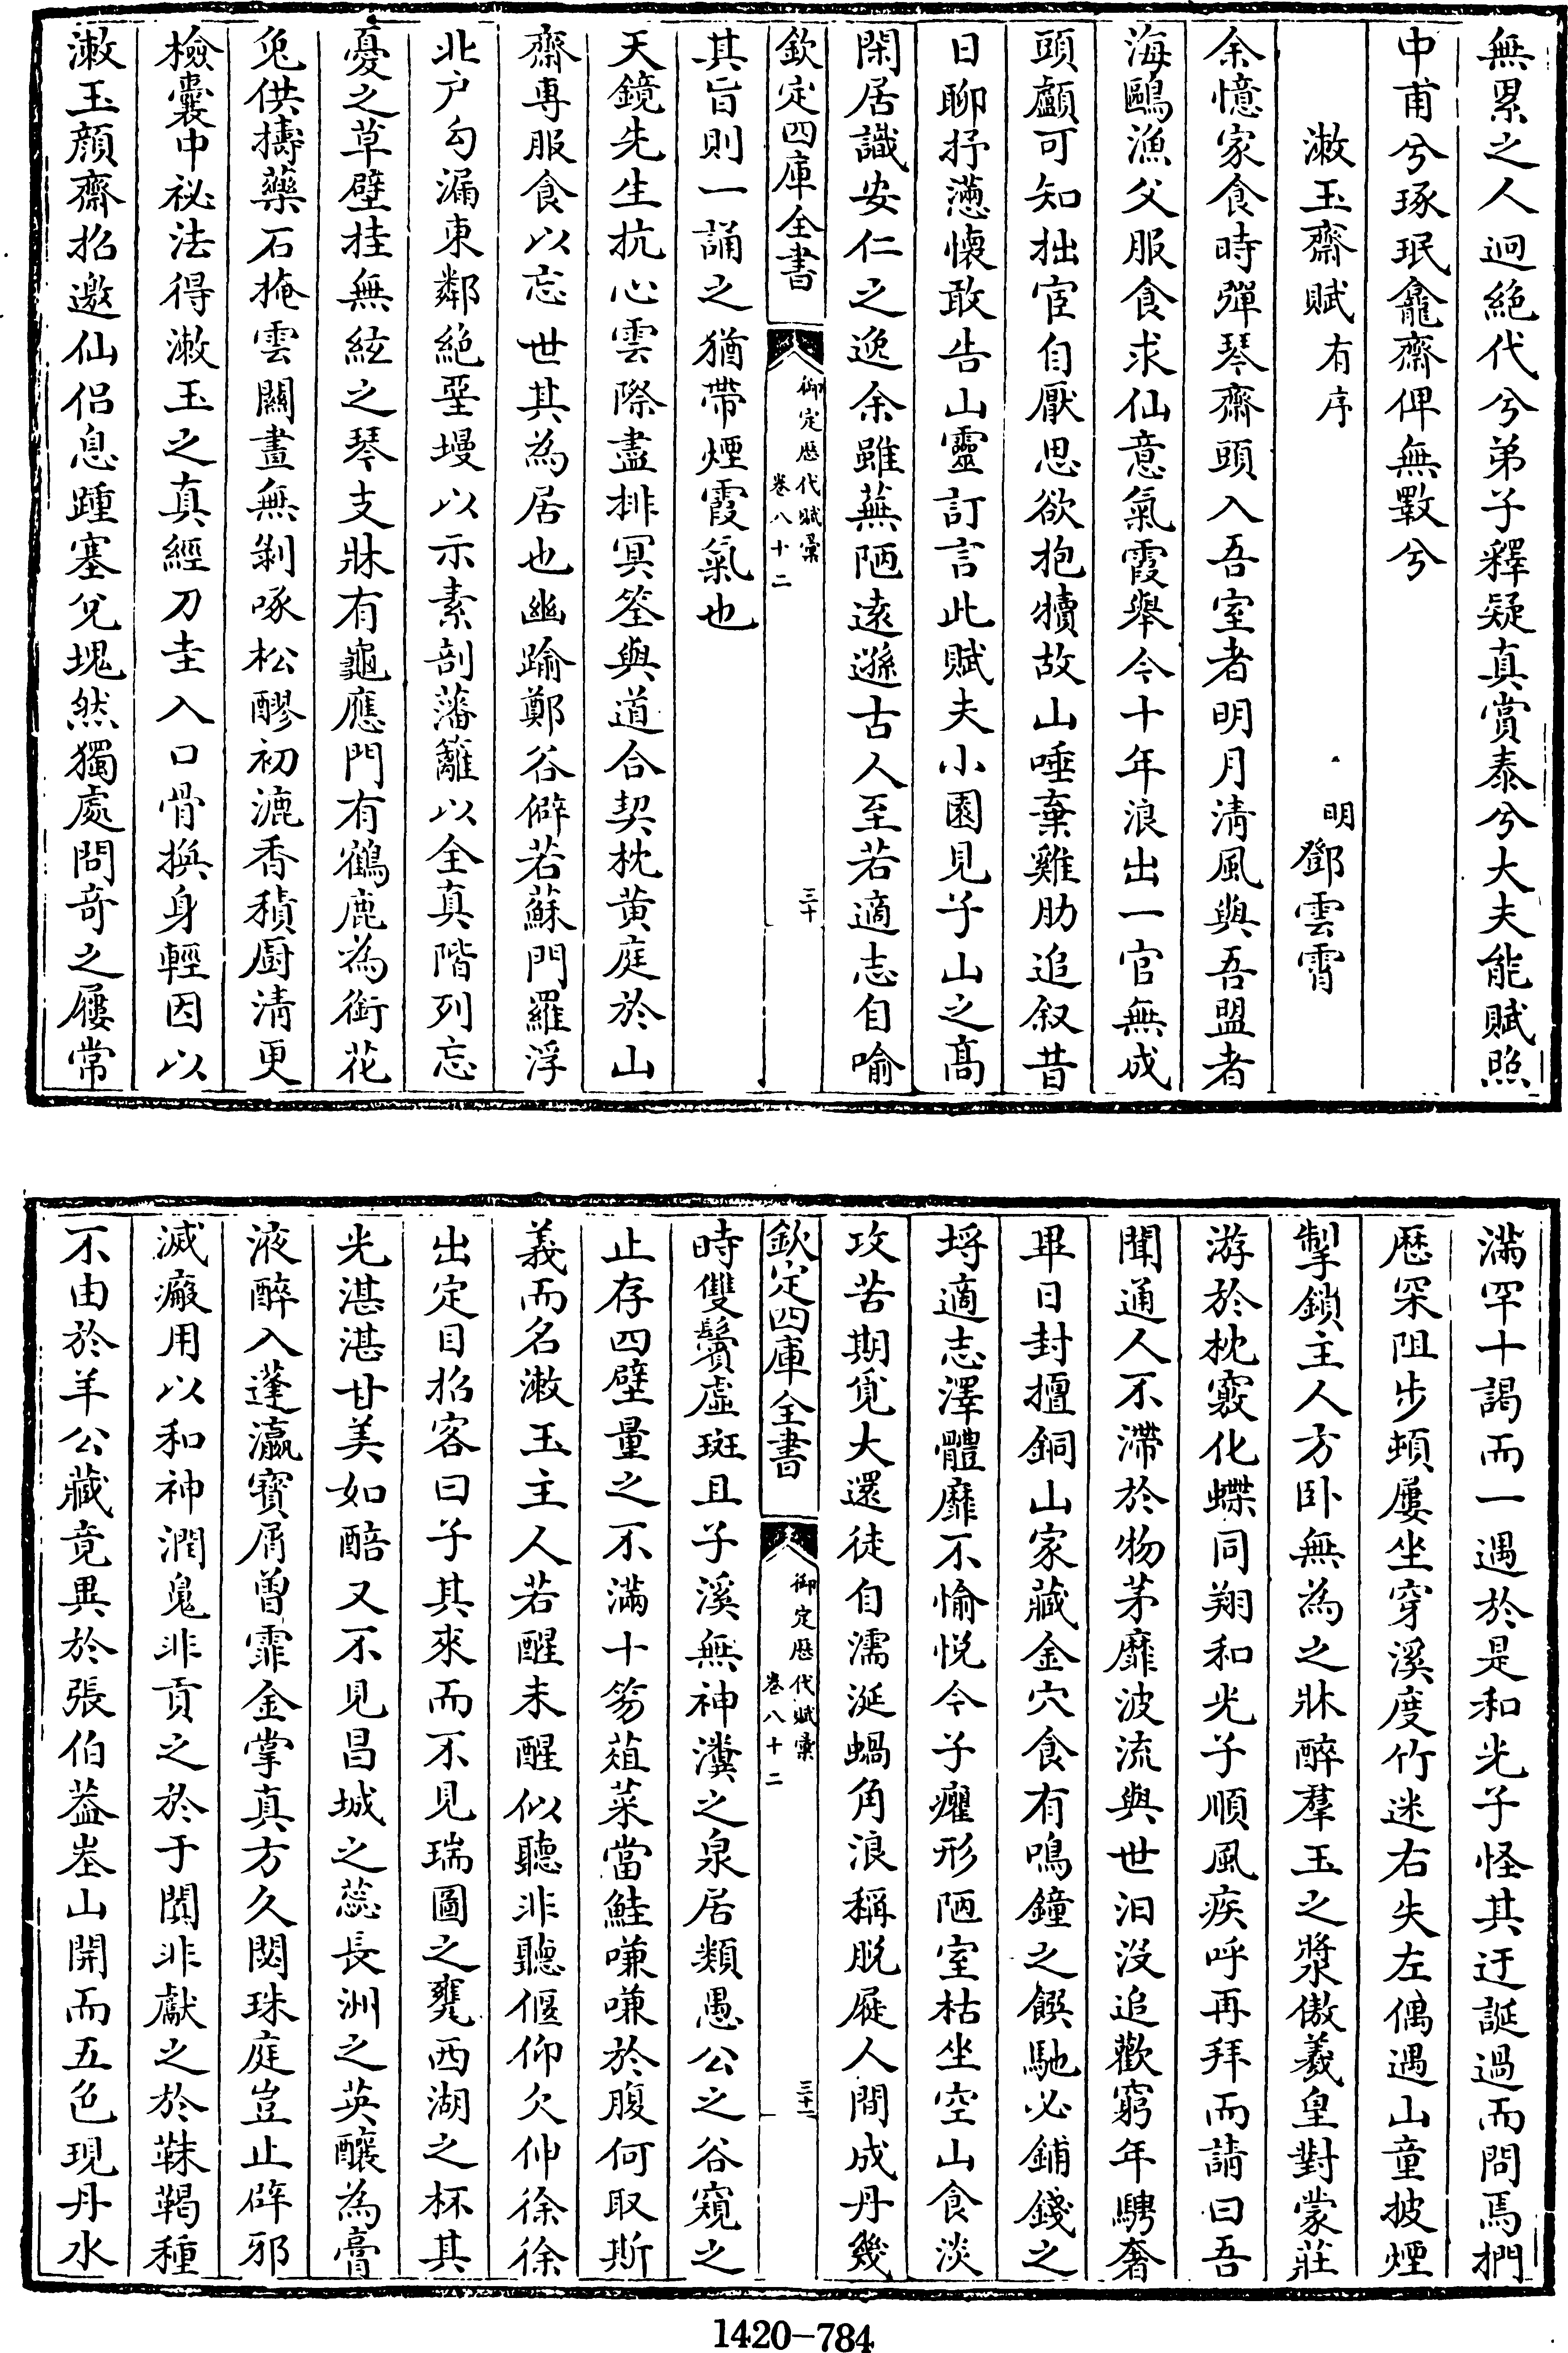 無累之人迥絶代兮弟子釋疑真賞泰兮大夫能賦照
中甫兮琢珉龕齋俾無斁兮
漱玉齋賦有序　明鄧雲霄
余憶家食時彈琴齋頭入吾室者明月清風與吾盟者
海鷗漁父服食求仙意氣霞舉今十年浪出一官無成
頭顱可知拙宦自厭思欲抱犢故山唾棄雞肋追叙昔
日聊抒懣懷敢告山靈訂言此賦夫小園見子山之高
閑居識安仁之逸余雖蕪陋逺遜古人至若適志自喻
欽定四庫全書
御定歴代賦彙
卷八十二
三十
其旨則一誦之猶帶煙霞氣也
天鏡先生抗心雲際盡排冥筌與道合契枕黄庭於山
齋專服食以忘世其為居也幽踰鄭谷僻若蘇門羅浮
北户勾漏東鄰絶堊墁以示素剖藩籬以全真階列忘
憂之草壁挂無絃之琴支牀有龜應門有鶴鹿為銜花
兔供擣藥石掩雲關晝無剝啄松醪初漉香積厨清更
檢囊中祕法得漱玉之真經刀圭入口骨換身輕因以
漱玉顔齋招邀仙侣息踵塞兌塊然獨處問竒之屨常
滿罕十謁而一遇於是和光子怪其迂誕過而問焉捫
歴罙阻步頓屢坐穿溪度竹迷右失左偶遇山童披煙
掣鎖主人方卧無為之牀醉羣玉之漿傲羲皇對蒙莊
游於枕竅化蝶同翔和光子順風疾呼再拜而請曰吾
聞通人不滯於物茅靡波流與世汩没追歡窮年騁奢
畢日封擅銅山家藏金穴食有鳴鐘之饌馳必鋪錢之
埒適志澤體靡不愉悦今子癯形陋室枯坐空山食淡
攻苦期覓大還徒自濡涎蝸角浪稱脱屣人間成丹幾
欽定四庫全書
御定歴代賦彙
卷八十二
三十一
時雙鬢虚斑且子溪無神瀵之泉居類愚公之谷窺之
止存四壁量之不滿十笏葅菜當鮭嗛嗛於腹何取斯
義而名漱玉主人若醒未醒似聽非聽偃仰欠伸徐徐
出定目招客曰子其來而不見瑞圖之甕西湖之杯其
光湛湛甘美如醅又不見昌城之蕊長洲之英釀為膏
液醉入蓬瀛寳屑曽霏金掌真方久閟珠庭豈止辟邪
滅癥用以和神潤鬼非貢之於于闐非獻之於靺鞨種
不由於羊公藏竟異於張伯葢峚山開而五色現丹水
1420-784